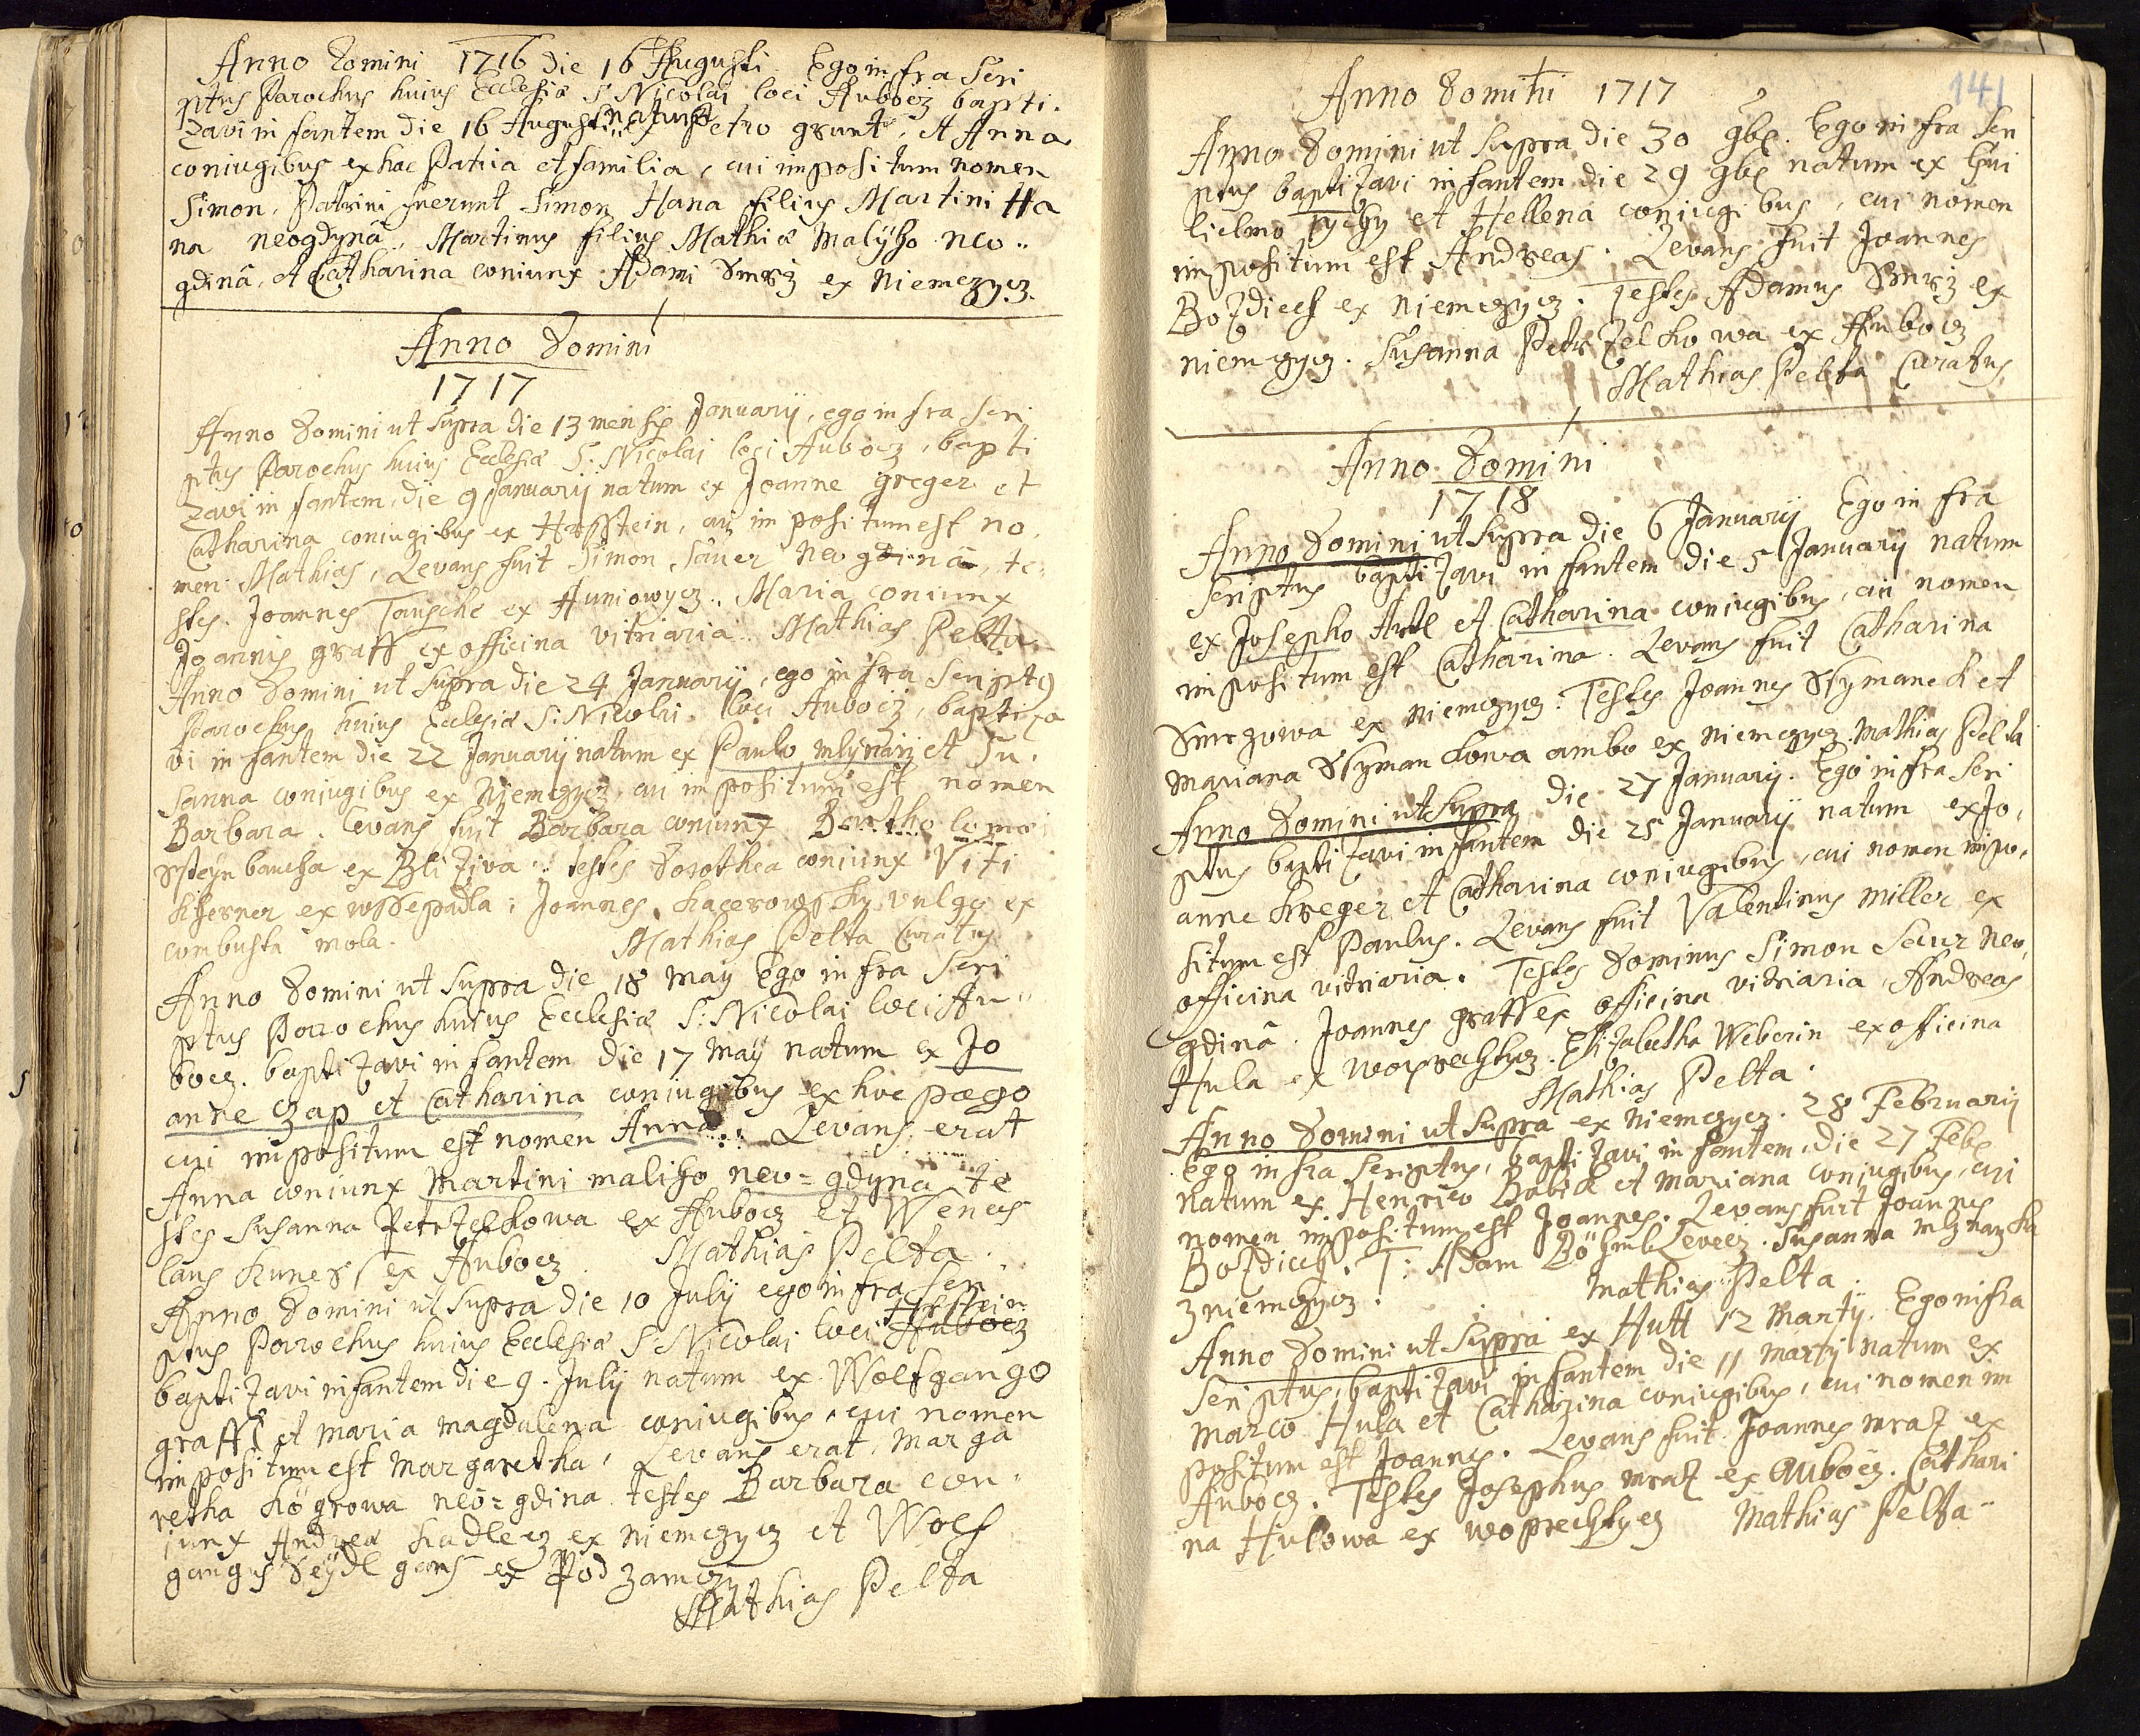 Anno Domini 1716 die 16 Augusti Ego in fra Scri
ptus Parochus huius Ecclesiæ S: Nicolai loci Aubocz bapti.
zavi in fantem die 16 Augusti natum ex Petro grunt, et Anna
coniugibus ex hac Patria et familia, cui impositum nomen
Simon. Patrini fuerunt Simon Hana filius Martini Ha
na neogdynâ, Martinus filius Mathiæ Malÿho neo..
gdinâ, et Catharina coniunx Adami Smrž ex Niemczycz.
Anno Domini
1717
Anno Domini ut Supra die 13 mensis Januarij, ego in fra Scri
ptus Parochus huius Ecclesiæ S: Nicolai loci Aubocz, bapti
zavi in fantem, die 9 Januarij natum ex Joanne greger et
Catharina coniugibus ex Hrsstein, cui im positum est no.
men Mathias, Levans fuit Simon Sauer neo gdinâ, te
stes. Joannes Tausche ex Huniowycz., Maria coniunx
Joannis graff ex officina vitriaria. Mathias Pelta
Anno Domini ut Supra die 24 Januarij, ego in fra Scriptus
Parochus huius Ecclesiæ S: Nicolai. loci Aubocz, baptiza
vi in fantem die 22 Januarij natum ex Paulo mlynarž et Su.
sanna coniugibus ex Njemczycz, cui im positum est nomen
Barbara. Levans fuit Barbara coniunx Bartholomei
Ssteÿnbaucha ex Bliživa.. testes Dorothea coniunx Viti
ex wssepadla; Joannes kacerowsky vulgo ex
combusta mola. Mathias Pelta Curatus
Anno Domini ut Supra die 18 may Ego in fra Scri
ptus Parochus huius Ecclesiæ S: Nicolai loci Au..
bocz. baptizavi in fantem die 17 may natum ex Jo
anne czap et Catharina coniugibus ex hoc pago
cui impositum est nomen Anna. Levans erat
Anna coniunx Martini maliho neo=gdyna te
stes Susanna Petrželkowa ex Aubocz et Wences
laus kuness ex Aubocz. Mathias Pelta.
Anno Domini ut Supra die 10 July ego in fra Scri
Hrsstein
ptus Parochus huius Ecclesiæ S: Nicolai loci Aubocz
baptizavi infantem die 9. July natum ex Wolfgango
graff et maria magdalena coniugibus, cui nomen
impositum est Margaretha, Levans erat Marga
retha högrowa neo=gdina testes Barbara con
junx Andreæ kadlecz ex Niemczycz et Wolf
gangus Seÿdl gans ex Pod zamczy
Mathias Pelta
141
Anno Domini 1717
Anno Domini ut Supra die 30 9be. Ego in fra Scri
ptus baptizavi infantem die 29 9be natum ex Gui
lielmo tychy et Hellena coniugibus, cui nomen
impositum est Andreas. Levans fuit Joannes
Bozdiech ex Niemczycz. Testes Adamus Smrž ex
niemczycz. Susanna Petrželkowa ex Aubocz
Mathias Pelta Curatus
Anno Domini
1718
Anno Domini ut Supra die 6 Januarij Ego in fra
Scriptus baptizavi in fantem die 5 Januarij natum
ex Josepho Artl et Catharina coniugibus, cui nomen
impositum est Catharina. Levans fuit Catharina
Smrzowa ex Niemczycz. Testes Joannes Ssymanek et
Mariana Ssymankowa ambo ex Niemczycz. Mathias Pelta
Anno Domini ut Supra die 27 Januarij. Ego in fra Scri
ptus baptizavi in fantem die 25 Januarij natum ex Jo,
anne kreger et Catharina coniugibus, cui nomen impo,
situm est Paulus. Levans fuit Valentinus miller ex
officina vitriaria. Testes Dominus Simon Saur neo,
gdinâ. Joannes graff ex officina vitriaria, Andreas
Hula ex woprechtycz. Elizabetha Weberin ex officina
Mathias Pelta.
Anno Domini ut Supra ex Niemczycz. 28 February
Ego in fra Scriptus, baptizavi in fantem, die 27 Feb
natum ex Henrico Babik et Mariana coniugibus, cui
nomen impositum est Joannes. Levans fuit Joannes
Bozdiech. T: Adam Böhmb Levecz. Susanna mlynarzka
z niemczycz. Mathias Pelta.
Anno Domini ut Supra ex Hutt 12 Martij. Ego infra
Scriptus, baptizavi in fantem die 11 Martij natum ex
Marco Hula et Catharina coniugibus, cui nomen im
positum est Joannes. Levans fuit. Joannes mraz ex
Aubocz. Testes Josephus mraz ex Aubocz. Cathari
na Hulowa ex woprechtycz Mathias Pelta